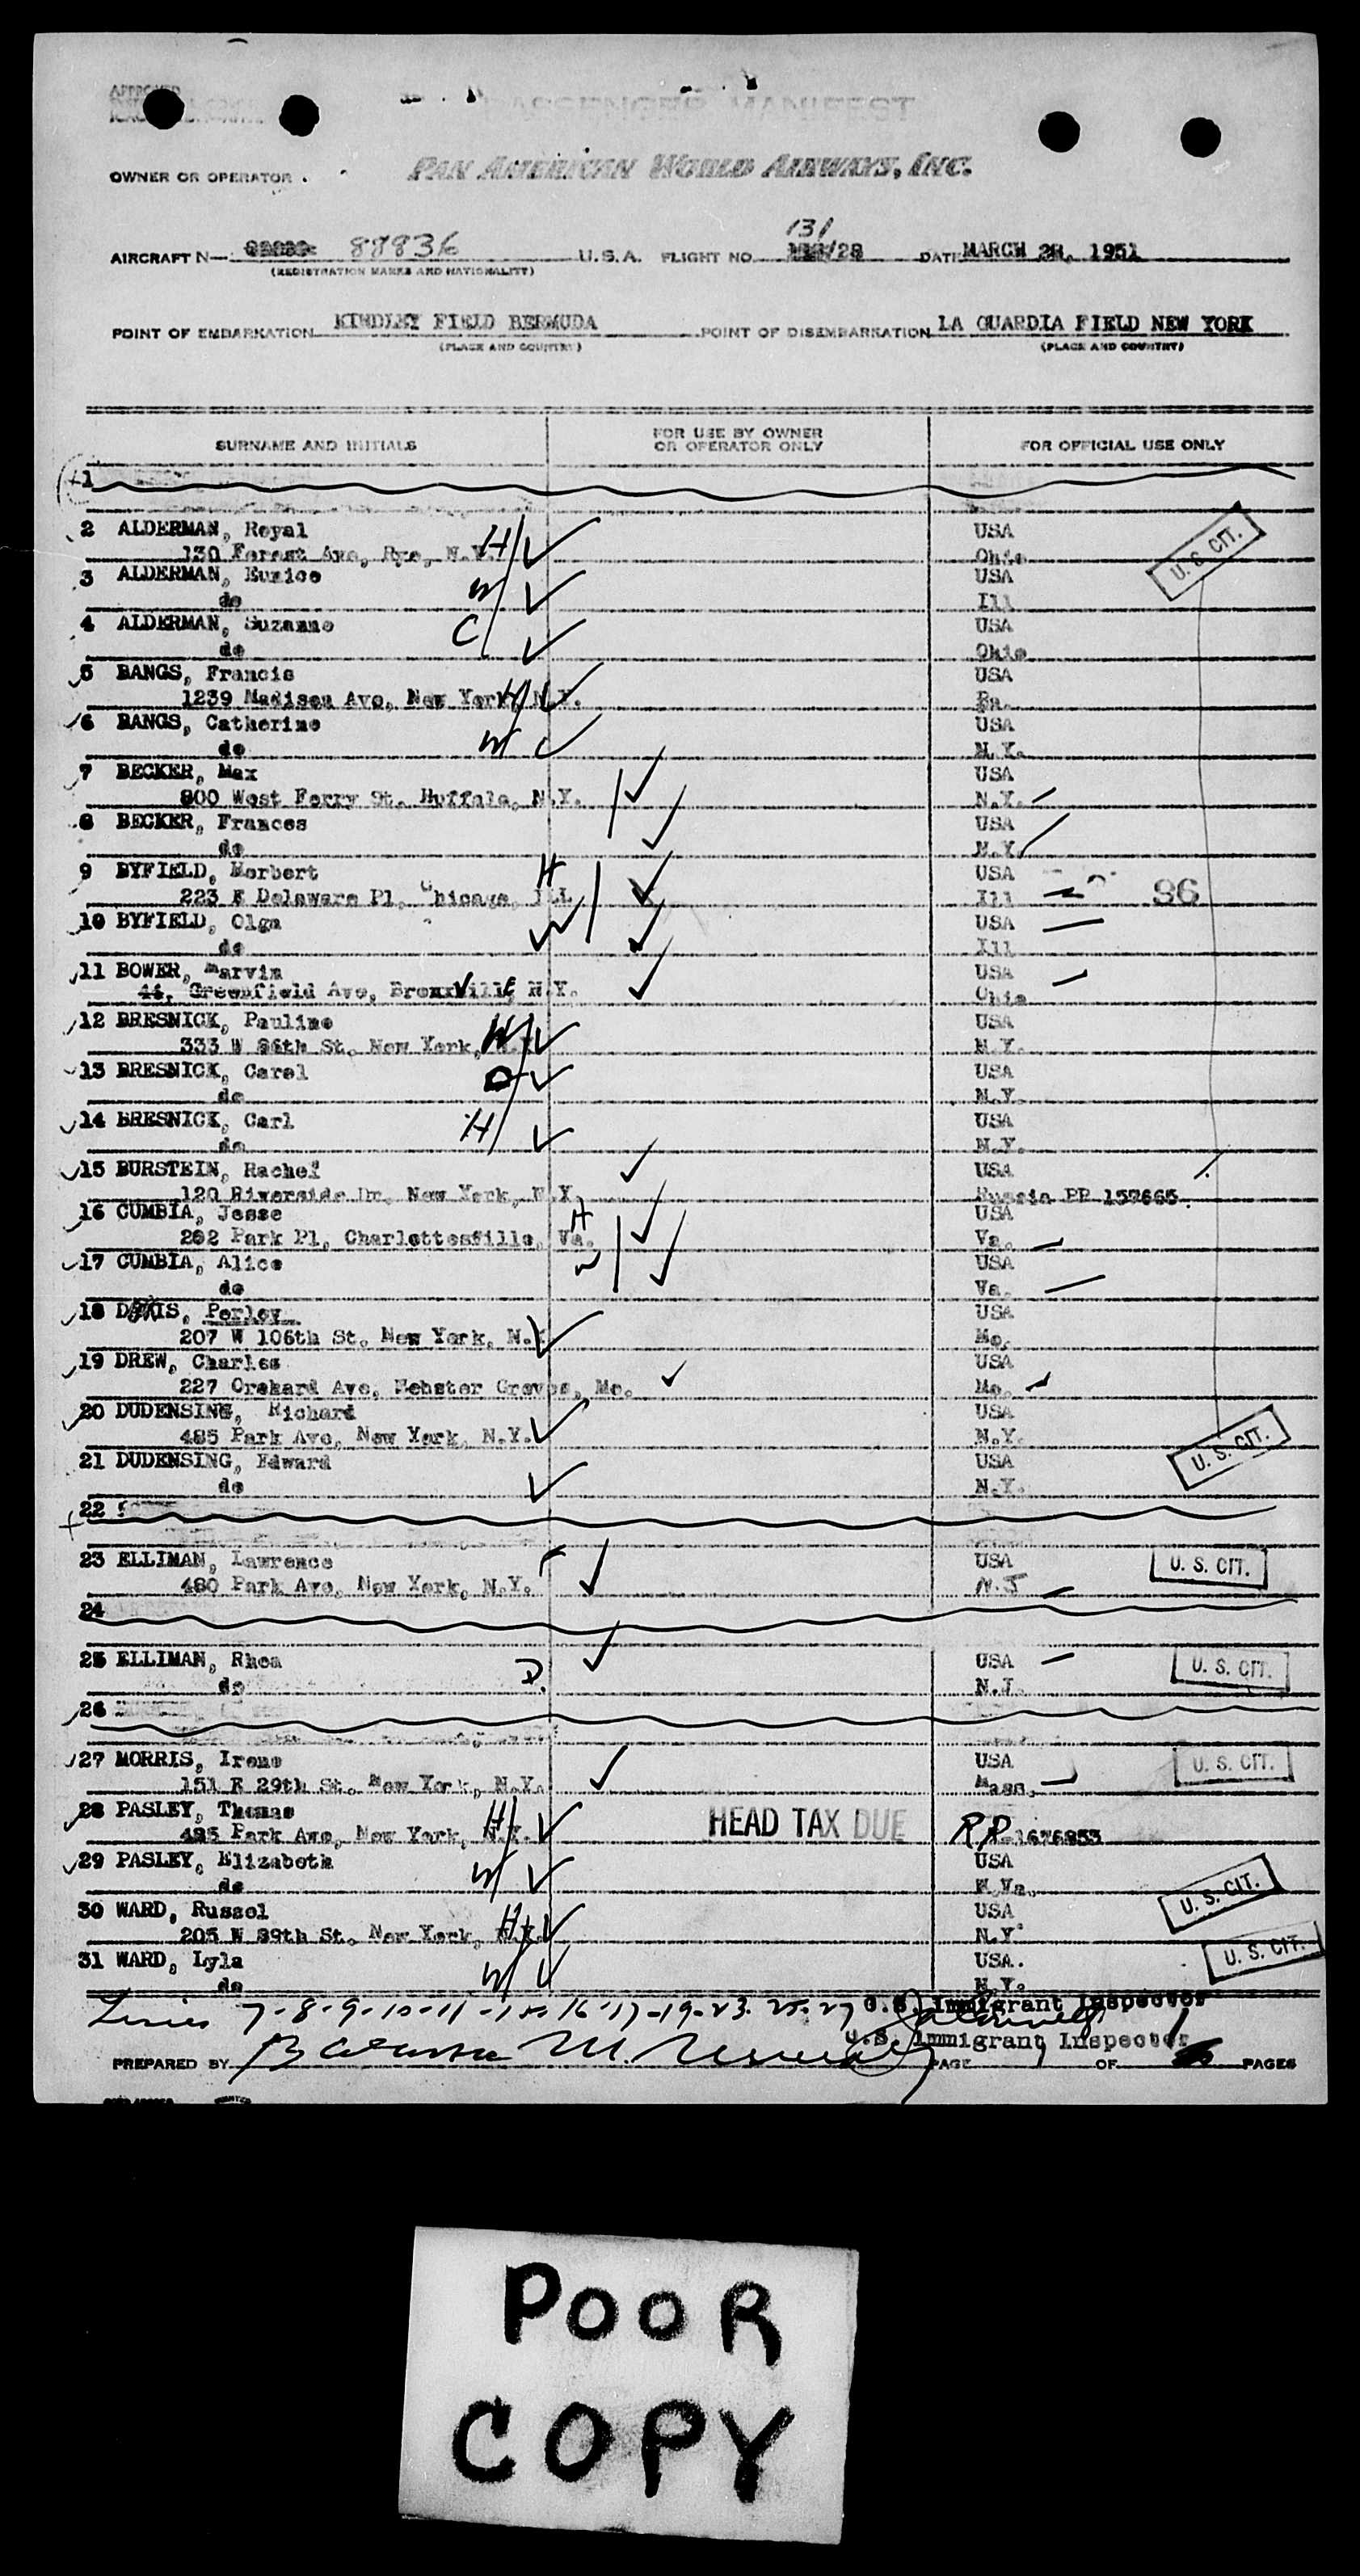 APPROVED
PASSENGER MANIFEST
OWNER OR OPERATOR PAN AMERICAN WORLD AIRWAYS, INC.
131
AIRCRAFT N— 88836 U.S.A. FLIGHT NO. /28 DATE MARCH 28, 1951
(REGISTRATION MARKS AND NATIONALITY)
POINT OF EMBARKATION KINDLEY FIELD BERMUDA POINT OF DISEMBARKATION LA GUARDIA FIELD NEW YORK
(PLACE AND COUNTRY) (PLACE AND COUNTRY)
SURNAME AND INITIALS FOR USE BY OWNER OR OPERATOR ONLY FOR OFFICIAL USE ONLY
1
2 ALDERMAN, Royal USA
130 Forest Ave, Rye, N.Y. H Ohio U. S. CIT.
3 ALDERMAN, Eunice USA
do W Ill
4 ALDERMAN, Suzanne C USA
do Ohio
5 BANGS, Francis USA
1239 Madison Ave, New York, N.Y. H Pa.
6 BANGS, Catherine USA
do W N.Y.
7 BECKER, Max USA
800 West Ferry St. Buffalo, N.Y. N.Y.
8 BECKER, Frances USA
do N.Y.
9 BYFIELD, Herbert H USA
223 E Delaware Pl, Chicago, ILL Ill 86
10 BYFIELD, Olga USA
do W Ill
11 BOWER, Marvin USA
44, Greenfield Ave, Bronxville, N.Y. Ohio
12 BRESNICK, Pauline W USA
333 W 86th St, New York, N.Y. N.Y.
13 BRESNICK, Carol D USA
do N.Y.
14 BRESNICK, Carl H USA
do N.Y.
15 BURSTEIN, Rachel USA
120 Riverside Dr, New York, N.Y. Russia PP 157665
16 CUMBIA, Jesse H USA
202 Park Pl, Charlottesville, Va. Va.
17 CUMBIA, Alice W USA
do Va.
18 DAVIS, Perley USA
207 W 106th St, New York, N.Y. Me.
19 DREW, Charles USA
227 Orchard Ave, Webster Groves, Mo. Mo.
20 DUDENSING, Richard USA
485 Park Ave, New York, N.Y. N.Y. U. S. CIT.
21 DUDENSING, Edward USA
do N.Y.
22
23 ELLIMAN, Lawrence USA U. S. CIT.
480 Park Ave, New York, N.Y. N.J
24
25 ELLIMAN, Rhea D. USA U. S. CIT.
do N.J.
26
27 MORRIS, Irene USA U. S. CIT.
151 E 29th St. New York, N.Y. Mass.
28 PASLEY, Thomas H HEAD TAX DUE
485 Park Ave, New York, N.Y. RP 1676853
29 PASLEY, Elizabeth W USA
do W.Va. U. S. CIT.
30 WARD, Russel H USA
205 W 89th St. New York, N.Y. N.Y
31 WARD, Lyla W USA. U. S. CIT.
do N.Y.
Lines 7-8-9-10-11-15-16-17-19-23-25-27 U.S. Immigrant Inspector
U.S. Immigrant Inspector
PREPARED BY PAGE 1 OF PAGES
POOR
COPY